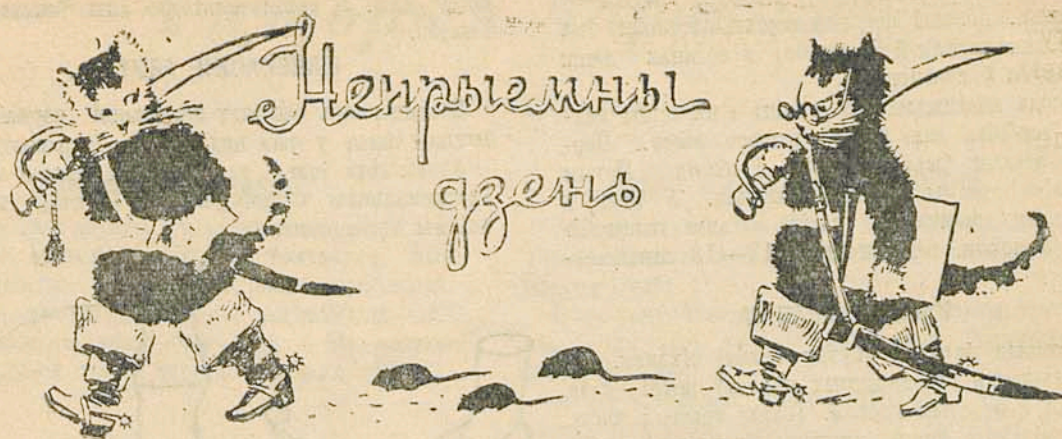 Непрыемны
дзень